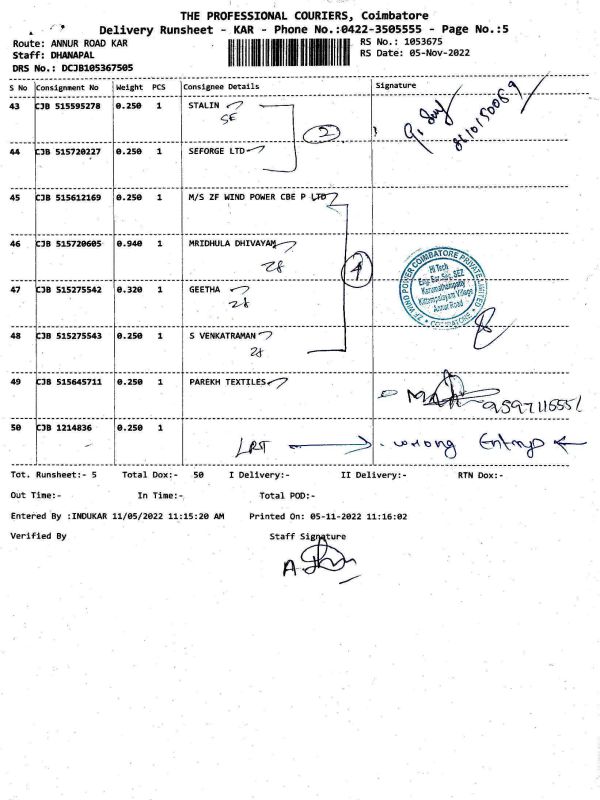 THE PROFESSIONAL COURIERS, Coimbatore
Delivery Runsheet - KAR - Phone No.:0422-3505555 - Page No.:5
Route: ANNUR ROAD KAR
RS No.: 1053675
Staff: DHANAPAL
RS Date: 05-Nov-2022
DRS No.: DCJB105367505
S No Consignment No Weight PCS Consignee Details Signature
43 CJB 515595278 0.250 1 STALIN
SE
2
44 CJB 515720227 0.250 1 SEFORGE LTD
45 CJB 515612169 0.250 1 M/S ZF WIND POWER CBE P LTD
46 CJB 515720605 0.940 1 MRIDHULA DHIVAYAM
28
4
ZF WIND POWER COIMBATORE PRIVATE LIMITED
Hi Tech
Karumathampatty
Kittampalayam Village
Annur Road
* COIMBATORE *
47 CJB 515275542 0.320 1 GEETHA
28
48 CJB 515275543 0.250 1 S VENKATRAMAN
28
49 CJB 515645711 0.250 1 PAREKH TEXTILES
50 CJB 1214836 0.250 1
LRT wrong Entry
Tot. Runsheet:- 5 Total Dox:- 50 I Delivery:- II Delivery:- RTN Dox:-
Out Time:- In Time:- Total POD:-
Entered By :INDUKAR 11/05/2022 11:15:20 AM Printed On: 05-11-2022 11:16:02
Verified By Staff Signature